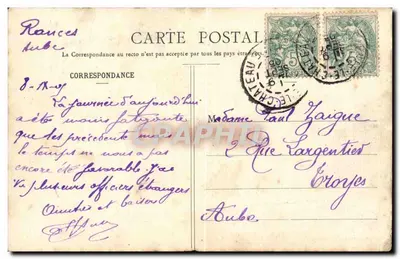 Rances
Aube
CARTE POSTALE
La Correspondance au recto n'est pas acceptée par tous les pays étrangers
CORRESPONDANCE
8-IX-05
La journée d'aujourd'hui
a été moins fatigante
que les précédentes mais
le temps ne nous a pas
encore été favorable. J'ai
vu plusieurs officiers étrangers
Amitiés et baisers
Madame Paul Zaigue
2 Rue Largentier
Troyes
Aube
LE-CHATEAU